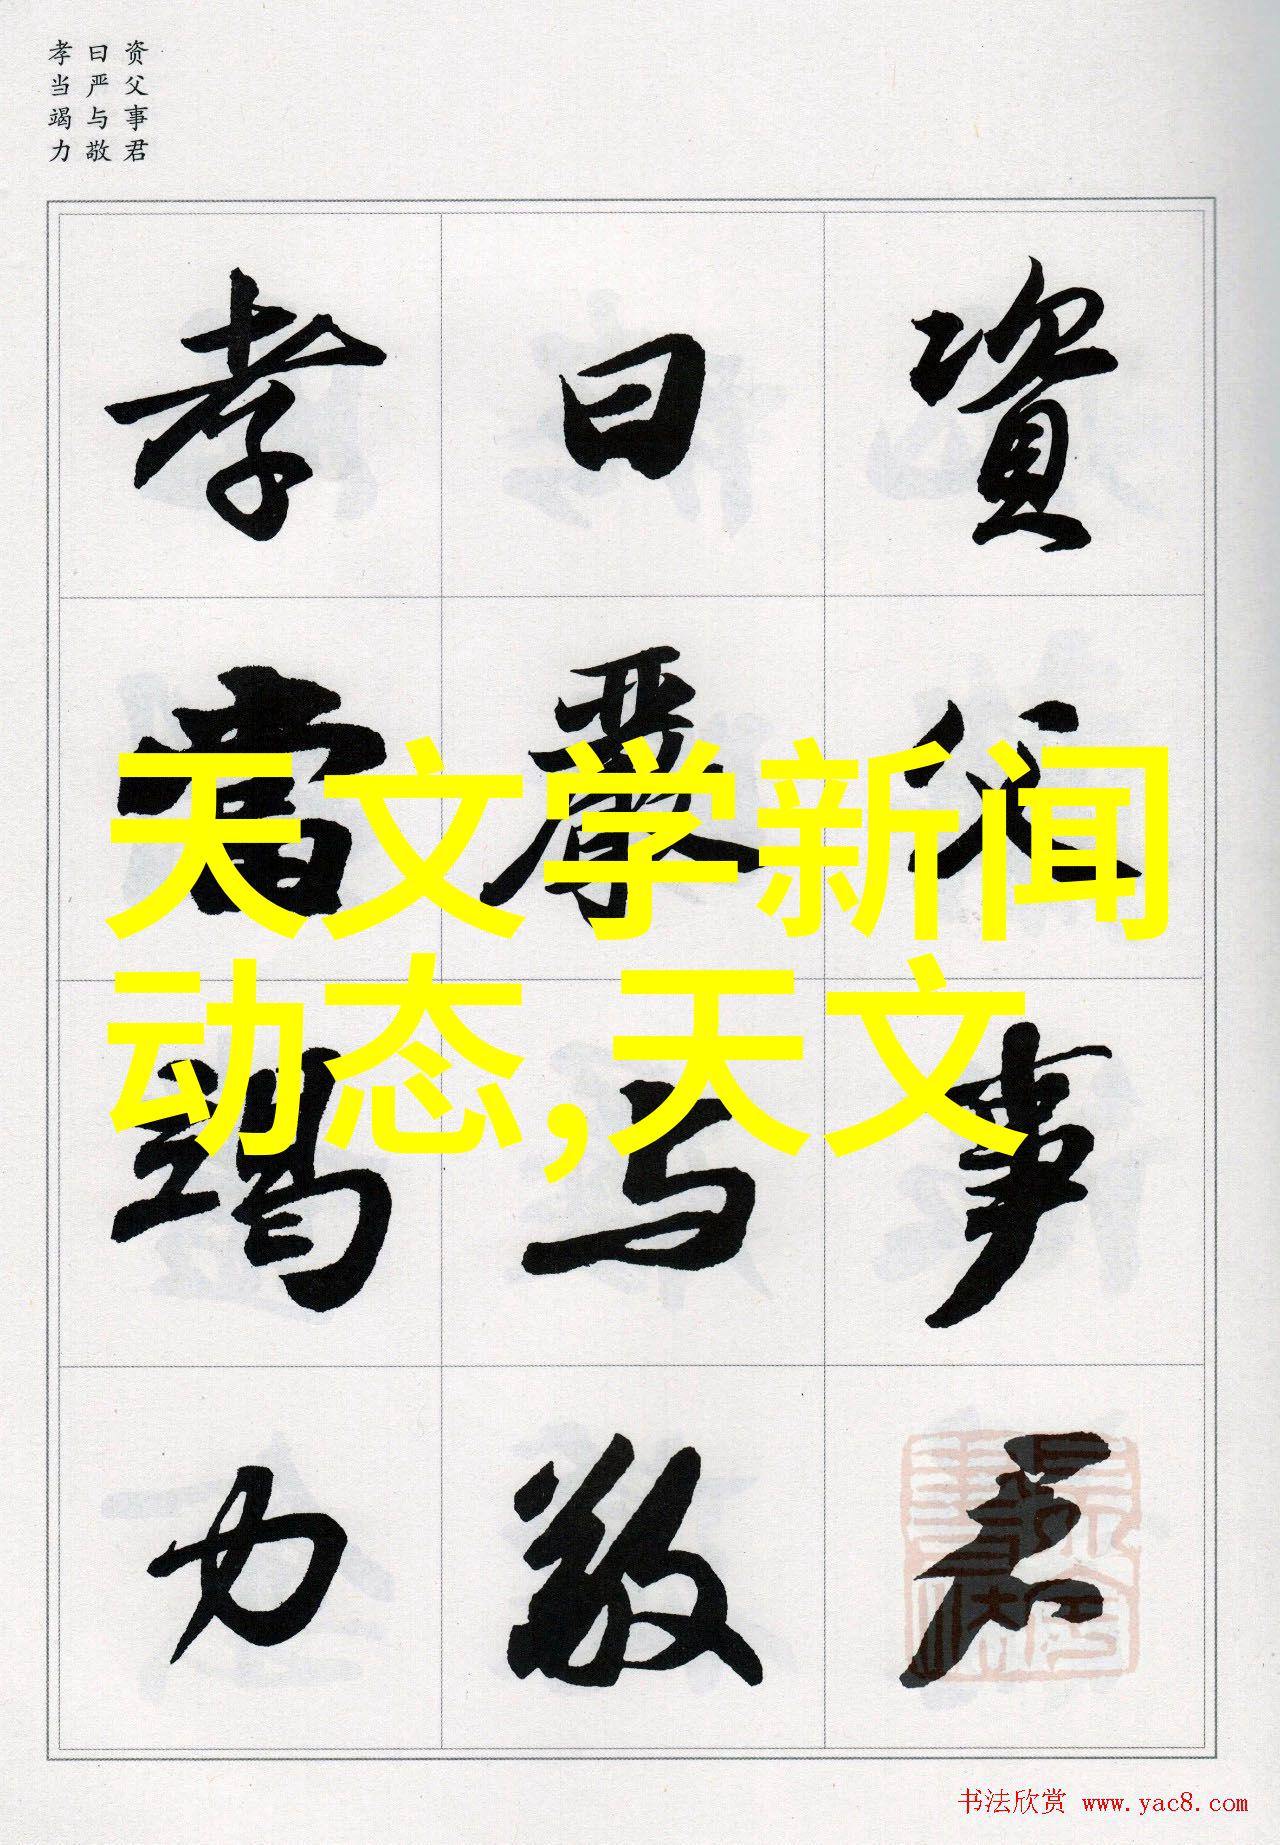 资父事君
曰严与敬
孝当竭力
資父事君
曰嚴与敬
孝當竭力
天文学新闻
动态,天文
书法欣赏 www.yac8.com